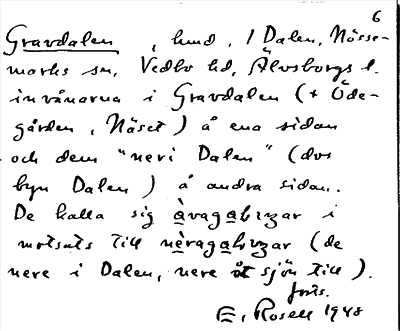 6
Gravdalen, hmd. i Dalen, Nösse-
marks sn, Vedbo hd, Älvsborgs l.
invånarna i Gravdalen (+ Öde-
gården, Näset) å ena sidan
och dem "neri Dalen" (dvs
byn Dalen) å andra sidan.
De kalla sig
motsats till (de
nere i Dalen, nere åt sjön till).
E. Rosell 1948